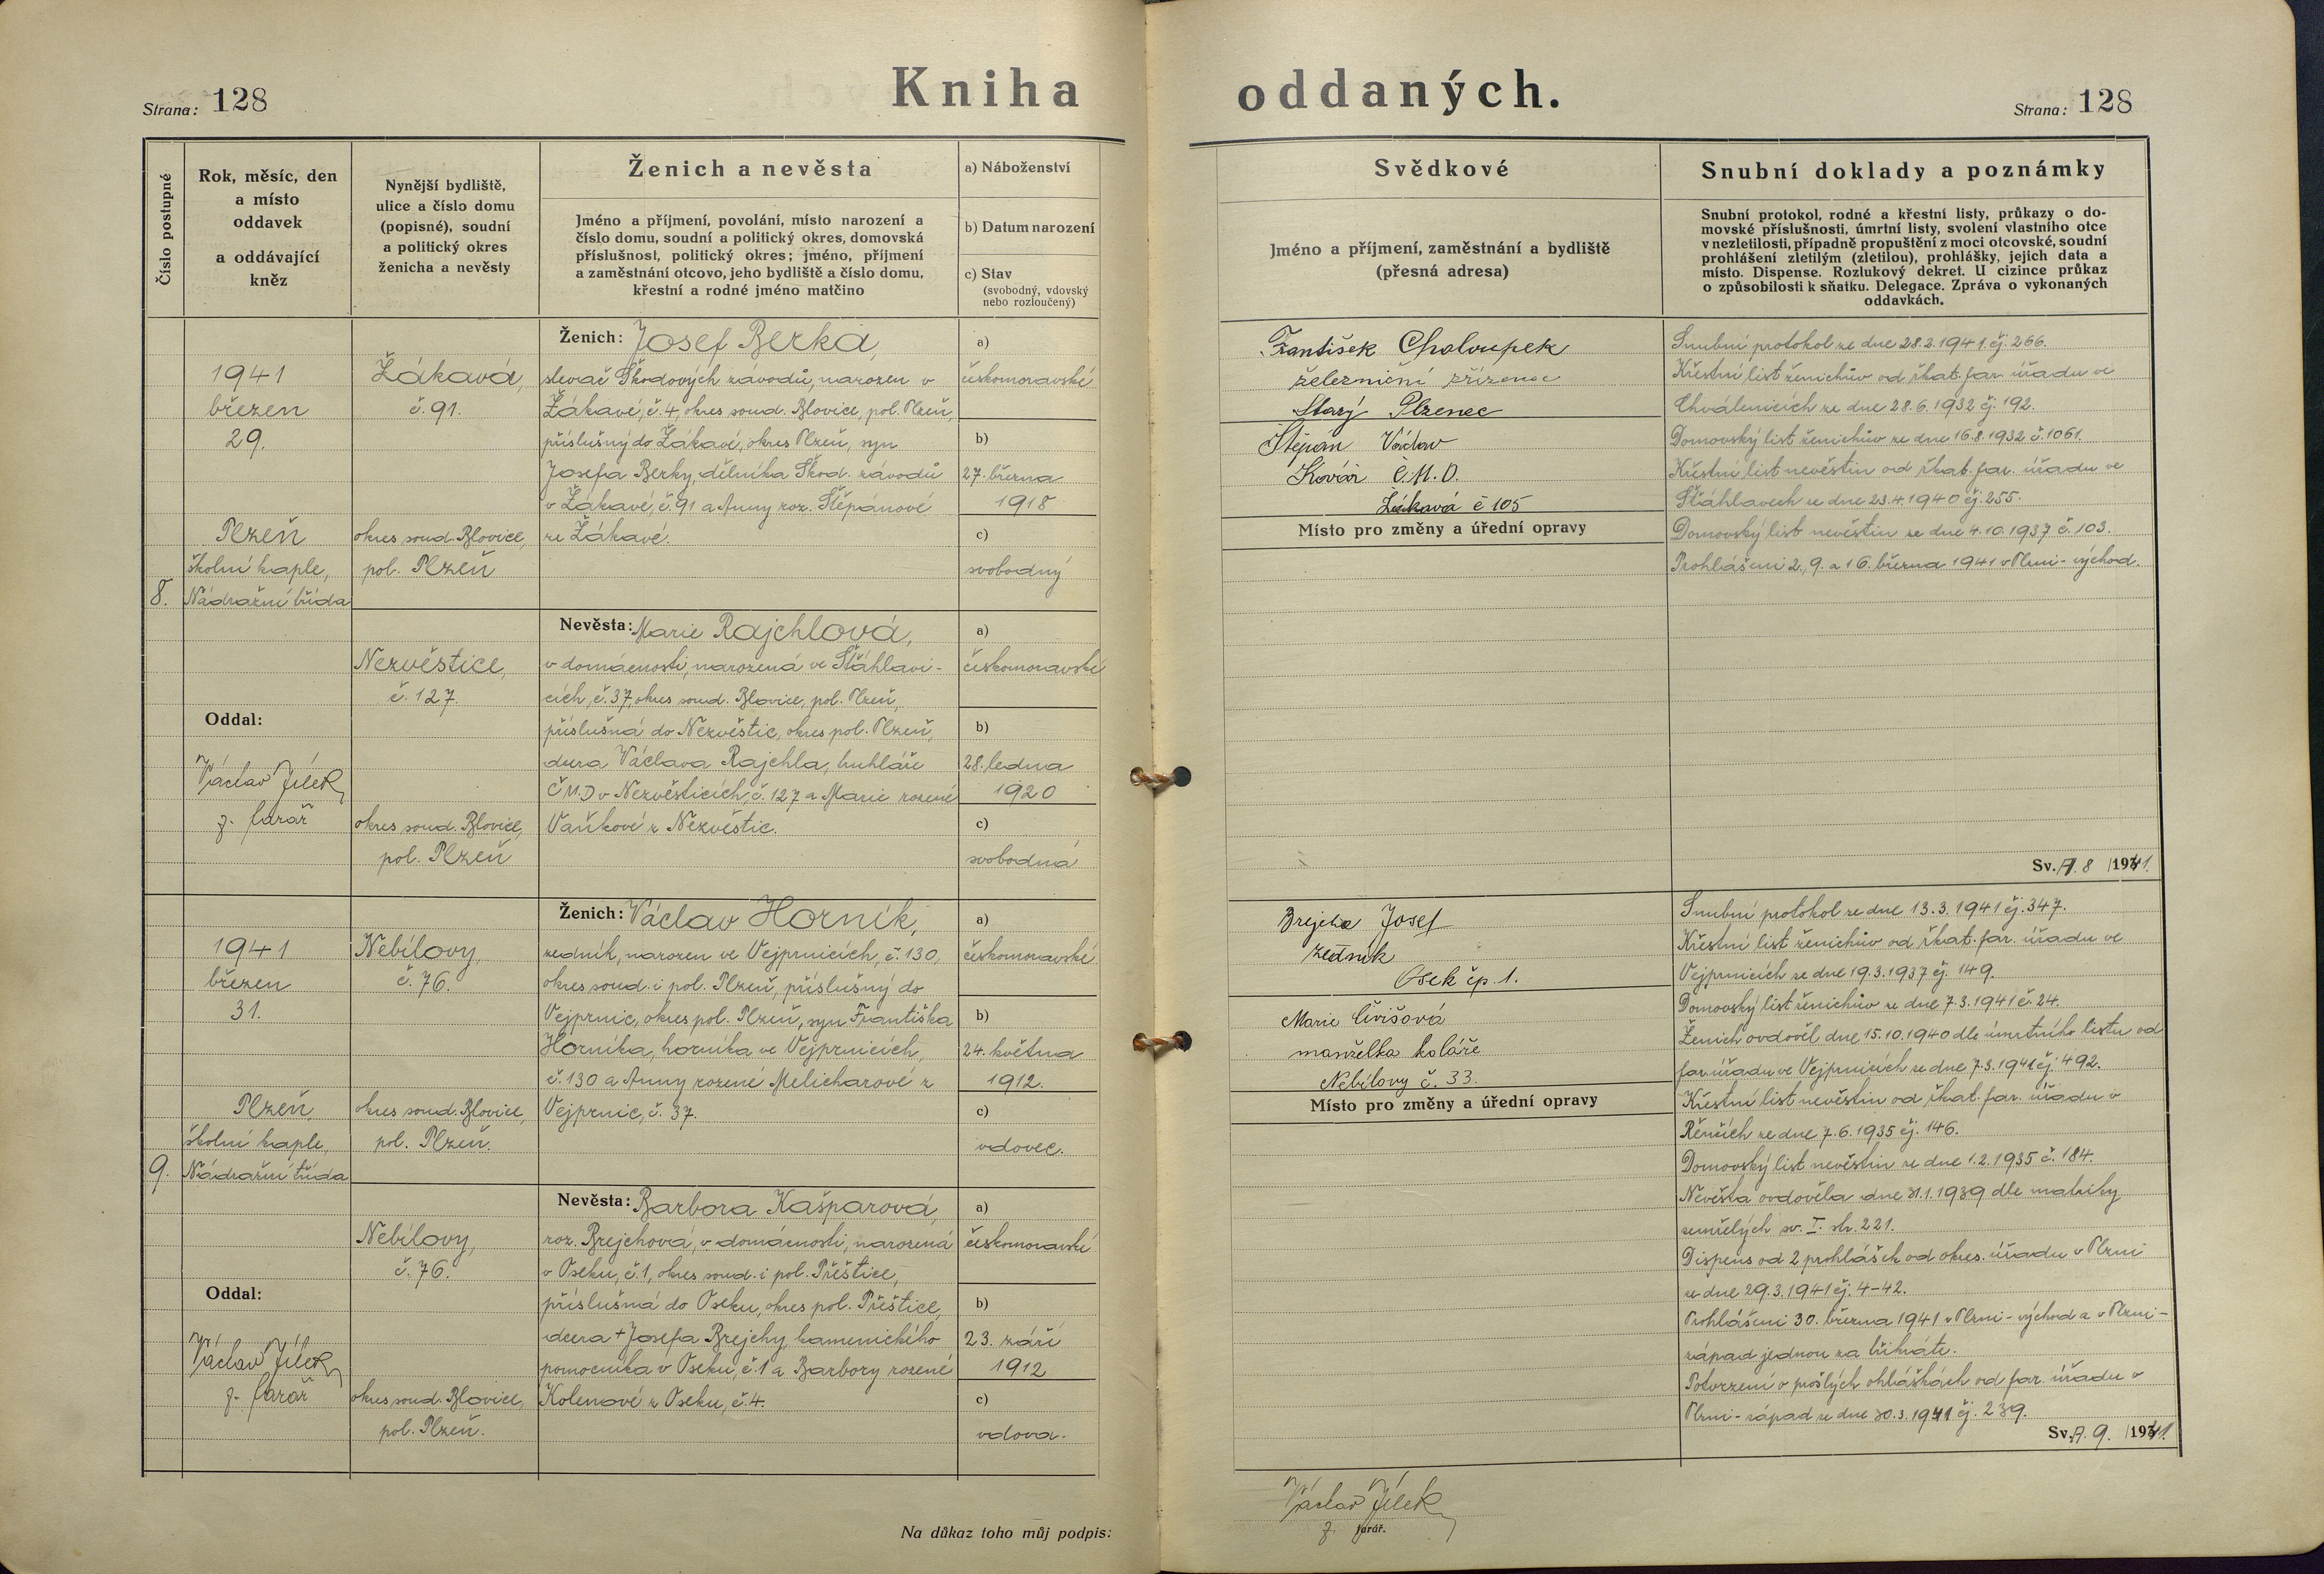 Strana: 128
Kniha oddaných.
Strana: 128
Číslo postupné
Rok, měsíc, den
a místo
oddavek
a oddávající
kněz
Nynější bydliště,
ulice a číslo domu
(popisné), soudní
a politický okres
ženicha a nevěsty
Ženich a nevěsta
Jméno a příjmení, povolání, místo narození a
číslo domu, soudní a politický okres, domovská
příslušnost, politický okres; jméno, příjmení
a zaměstnání otcovo, jeho bydliště a číslo domu,
křestní a rodné jméno matčino
a) Náboženství
b) Datum narození
c) Stav
(svobodný, vdovský
nebo rozloučený)
Svědkové
Jméno a příjmení, zaměstnání a bydliště
(přesná adresa)
Snubní doklady a poznámky
Snubní protokol, rodné a křestní listy, průkazy o do-
movské příslušnosti, úmrtní listy, svolení vlastního otce
v nezletilosti, případně propuštění z moci otcovské, soudní
prohlášení zletilým (zletilou), prohlášky, jejich data a
místo. Dispense. Rozlukový dekret. U cizince průkaz
o způsobilosti k sňatku. Delegace. Zpráva o vykonaných
oddavkách.
8.
1941
březen
29.
Plzeň
školní kaple,
Nádražní třída
Oddal:
Václav Jílek
f. farář
Žákavá,
č. 91.
okres soud. Blovice,
pol. Plzeň
Nezvěstice,
č. 127.
okres soud. Blovice,
pol. Plzeň
Ženich: Josef Berka,
slevač Škodových závodů, narozen v
Žákavé, č. 4, okres soud. Blovice, pol. Plzeň,
příslušný do Žákavé, okres Plzeň, syn
Josefa Berky, dělníka Škod. závodů
v Žákavé, č. 91 a Anny roz. Štěpánové
ze Žákavé.
a)
českomoravské
b)
27. března
1918
c)
svobodný
Nevěsta: Marie Rajchlová,
v domácnosti, narozená ve Šťáhlavi-
cích, č. 37, okres soud. Blovice, pol. Plzeň,
příslušná do Nezvěstic, okres pol. Plzeň,
dcera Václava Rajchla, truhláře
ČMD v Nezvěsticích, č. 127 a Marie rozené
Vaňkové z Nezvěstic.
a)
českomoravské
b)
28. ledna
1920
c)
svobodná
František Chaloupek
železniční zřízenec
Starý Plzenec
Štěpán Václav
Kovář Č.M.D.
Žákavá č 105
Místo pro změny a úřední opravy
Snubní protokol ze dne 28.2.1941 čj. 266.
Křestní list ženichův od řkat. far. úřadu ve
Chválenicích ze dne 28.6.1932 čj. 192.
Domovský list ženichův ze dne 16.8.1932 č. 1061.
Křestní list nevěstin od řkat. far. úřadu ve
Šťáhlavech ze dne 23.4.1940 čj. 255.
Domovský list nevěstin ze dne 4.10.1937 č. 103.
Prohlášeni 2., 9. a 16. března 1941 v Plzni - východ.
Sv. A. 8 /1941.
9.
1941
březen
31.
Plzeň
školní kaple,
Nádražní třída
Oddal:
Václav Jílek
f. farář
Nebílovy,
č. 76.
okres soud. Blovice,
pol. Plzeň.
Nebílovy,
č. 76.
okres soud. Blovice,
pol. Plzeň.
Ženich: Václav Horník,
zedník, narozen ve Vejprnicích, č. 130,
okres soud. i pol. Plzeň, příslušný do
Vejprnic, okres pol. Plzeň, syn Františka
Horníka, horníka ve Vejprnicích,
č. 130 a Anny rozené Melicharové z
Vejprnic, č. 37.
a)
českomoravské
b)
24. května
1912.
c)
vdovec.
Nevěsta: Barbora Kašparová,
roz. Brejchová, v domácnosti, narozená
v Oseku, č. 1, okres soud. i pol. Přeštice,
příslušná do Oseku, okres pol. Přeštice,
dcera + Josefa Brejchy, kamenického
pomocníka v Oseku, č. 1 a Barbory rozené
Kolenové z Oseku, č. 4.
a)
českomoravské
b)
23. září
1912
c)
vdova.
Brejcha Josef
zedník
Osek čp. 1.
Marie
manželka koláře
Nebílovy č. 33.
Místo pro změny a úřední opravy
Snubní protokol ze dne 13.3.1941 čj. 347.
Křestní list ženichův od řkat. far. úřadu ve
Vejprnicích ze dne 19.3.1937 čj. 149.
Domovský list ženichův ze dne 7.3.1941 č. 24.
Ženich ovdověl dne 15.10.1940 dle úmrtního listu od
far. úřadu ve Vejprnicích ze dne 7.3.1941 čj. 492.
Křestní list nevěstin od řkat. far. úřadu v
Řenčích ze dne 7.6.1935 čj. 146.
Domovský list nevěstin ze dne 1.2.1935 č. 184.
Nevěsta ovdověla dne 31.1.1939 dle matriky
zemřelých sv. I. str. 221.
Dispens od 2 prohlášek od okres. úřadu v Plzni
ze dne 29.3.1941 čj. 4-42.
Prohlášeni 30. března 1941 v Plzni - východ a v Plzni -
západ jednou za třikráte.
Potvrzení o prošlých ohláškách od far. úřadu v
Plzni - západ ze dne 30.3.1941 čj. 239.
Sv. A. 9. /1941.
Na důkaz toho můj podpis:
Václav Jílek
f. farář.